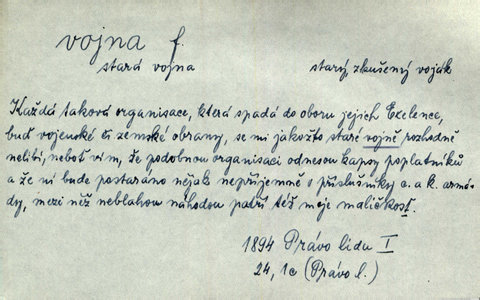 vojna f.
stará vojna starý, zkušený voják
Každá taková organisace, která spadá do oboru jejich Excelence,
buď vojenské či zemské obrany, se mi jakožto staré vojně rozhodně
nelíbí, neboť vím, že podobnou organisaci odnesou kapsy poplatníků
a že ní bude postaráno nějak nepříjemně o příslušníky c. a k. armá-
dy, mezi něž neblahou náhodou patří též moje maličkost.
1894 Právo lidu I
24, 1c (Právo l.)